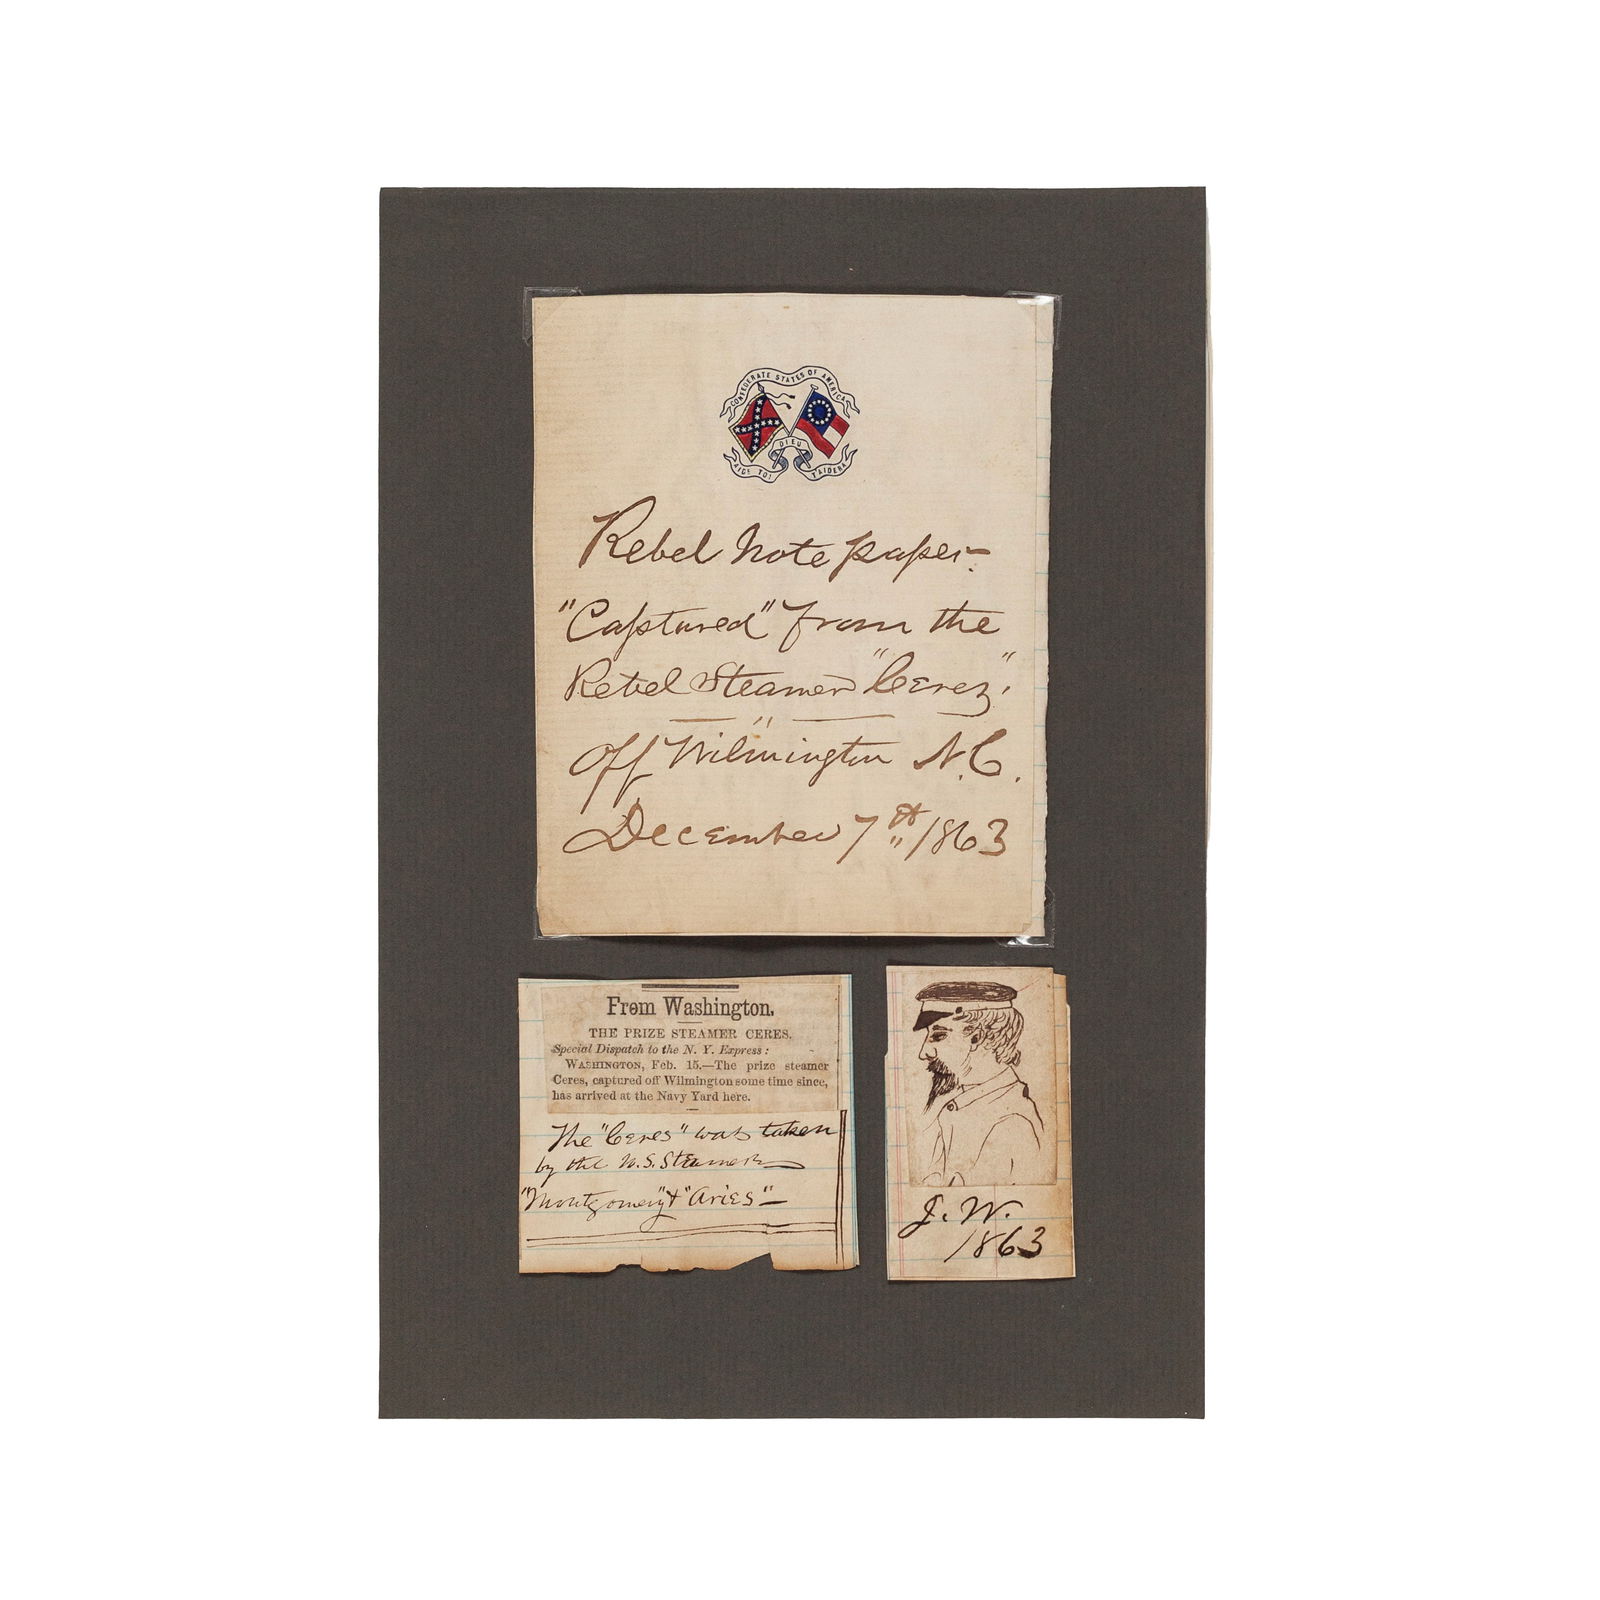 CONFEDERATE STATES OF AMERICA
DIEU
AIDE TOI T'AIDERA
Rebel Note paper-
"Captured" from the
Rebel Steamer "Ceres,"
off Wilmington N.C.
December 7th 1863
From Washington.
THE PRIZE STEAMER CERES.
Special Dispatch to the N. Y. Express:
WASHINGTON, Feb. 15.—The prize steamer
Ceres, captured off Wilmington some time since,
has arrived at the Navy Yard here.
The "Ceres" was taken
by the U.S. Steamers
"Montgomery" & "Aries"—
J. W.
1863